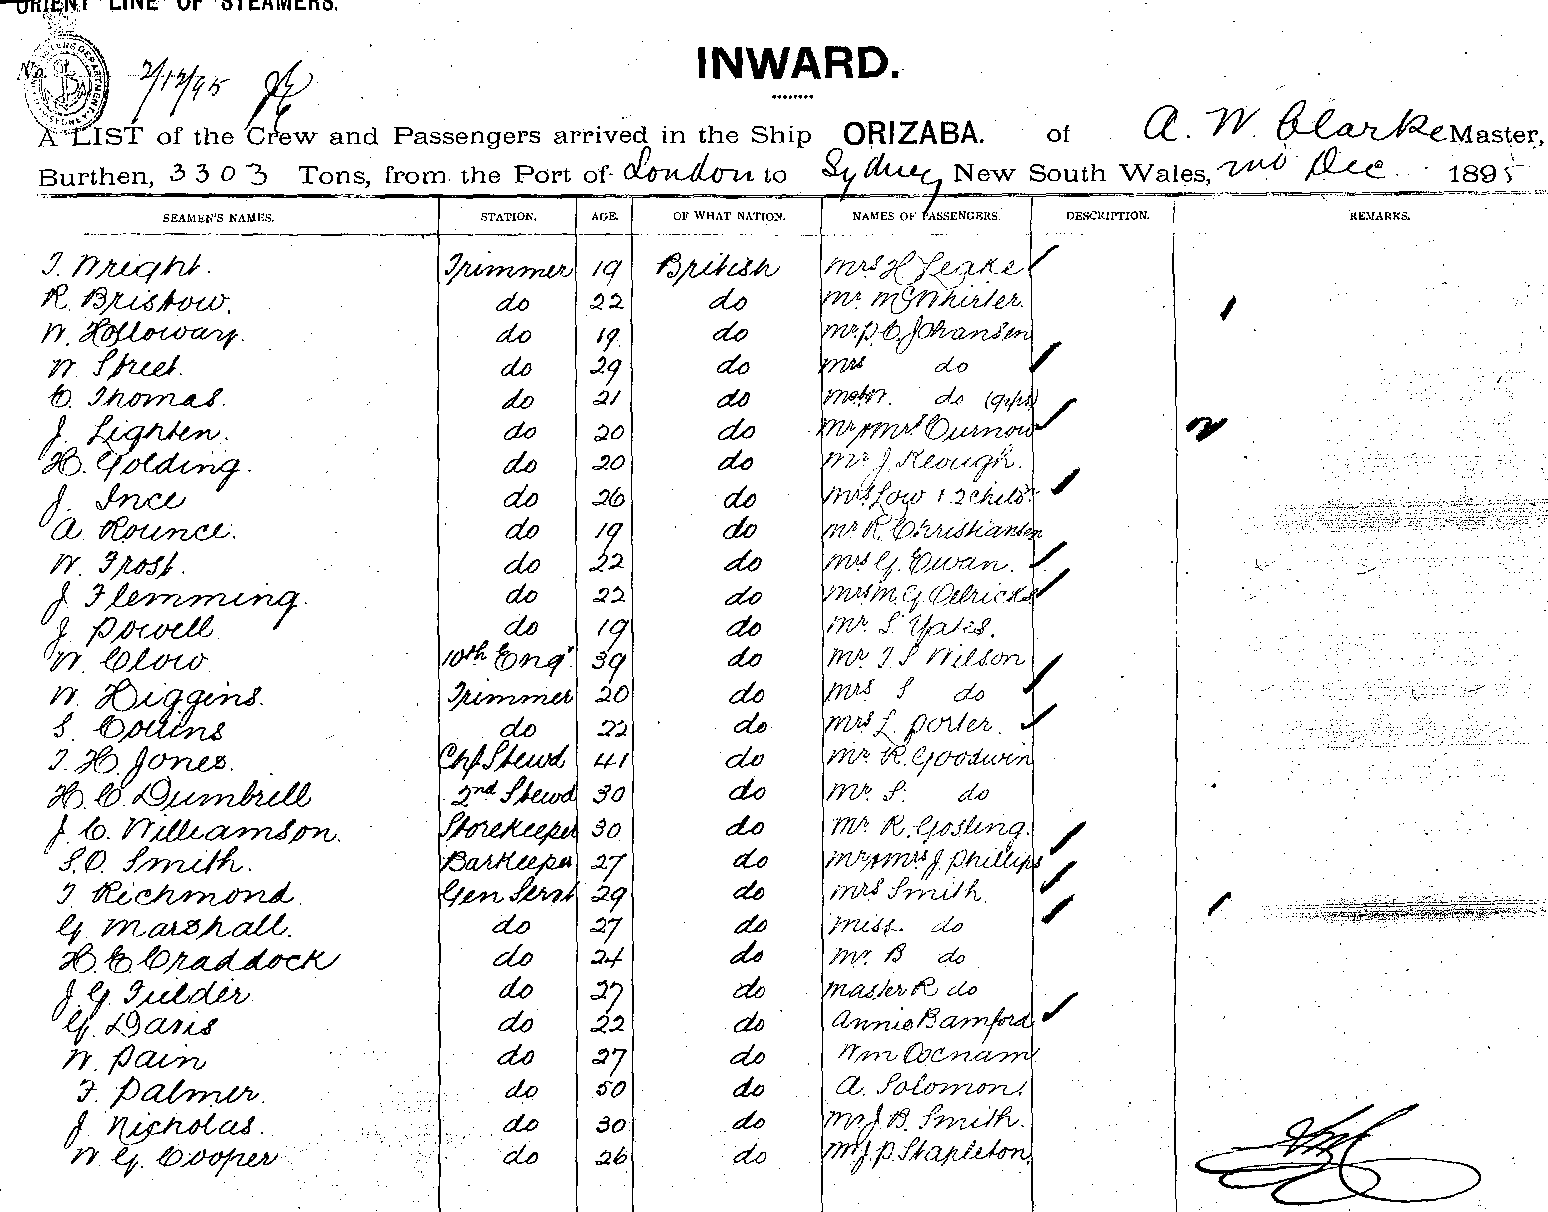 ORIENT LINE OF STEAMERS.
INWARD.
2/12/95
A LIST of the Crew and Passengers arrived in the Ship ORIZABA. of A. W. Clarke Master,
Burthen, 3303 Tons, from the Port of London to Sydney New South Wales, 2nd Dec 1895
SEAMEN'S NAMES. STATION. AGE. OF WHAT NATION. NAMES OF PASSENGERS. DESCRIPTION. REMARKS.
T. Wright. Trimmer 19 British Mrs H Leake
R. Bristow. do 22 do Mr. McWhirter. 1
W. Holloway. do 19 do Mr. P. C. Johansen
W. Street. do 29 do Mrs do
C. Thomas. do 21 do do
J. Lighten. do 20 do Mr & Mrs Curnow 2
H. Golding. do 20 do Mr J. Keough.
J. Ince do 26 do Mrs Low & 2 Childn
A. Rounce. do 19 do Mr. R. Christiansen
W. Frost. do 22 do Mrs G. Ewan.
J. Flemming. do 22 do Mrs M. G. Oelricks
J. Powell do 19 do Mr. S. Yates.
W. Clow 10th Engr 39 do Mr. T. S. Wilson
W. Higgins. Trimmer 20 do Mrs S do
S. Collins do 22 do Mrs L. Porter.
T. H. Jones. Chf Stewd 41 do Mr. R. Goodwin
H. C. Dumbrell 2nd Stewd 30 do Mr. S. do
J. C. Williamson. Storekeeper 30 do Mr R. Gosling.
S. O. Smith. Barkeeper 27 do Mr & Mrs J. Phillips
T. Richmond Gen Servt 29 do Mrs Smith.
G. Marshall. do 27 do Miss do 1
H. E. Craddock do 24 do Mr. B do
J. G. Fielder do 27 do Master R do
G. Davis do 22 do Annie Bamford
W. Pain do 27 do Wm
F. Palmer. do 50 do A. Solomon.
J. Nicholas. do 30 do Mr J. B. Smith.
W. G. Cooper do 26 do Mr J. P. Stapleton.